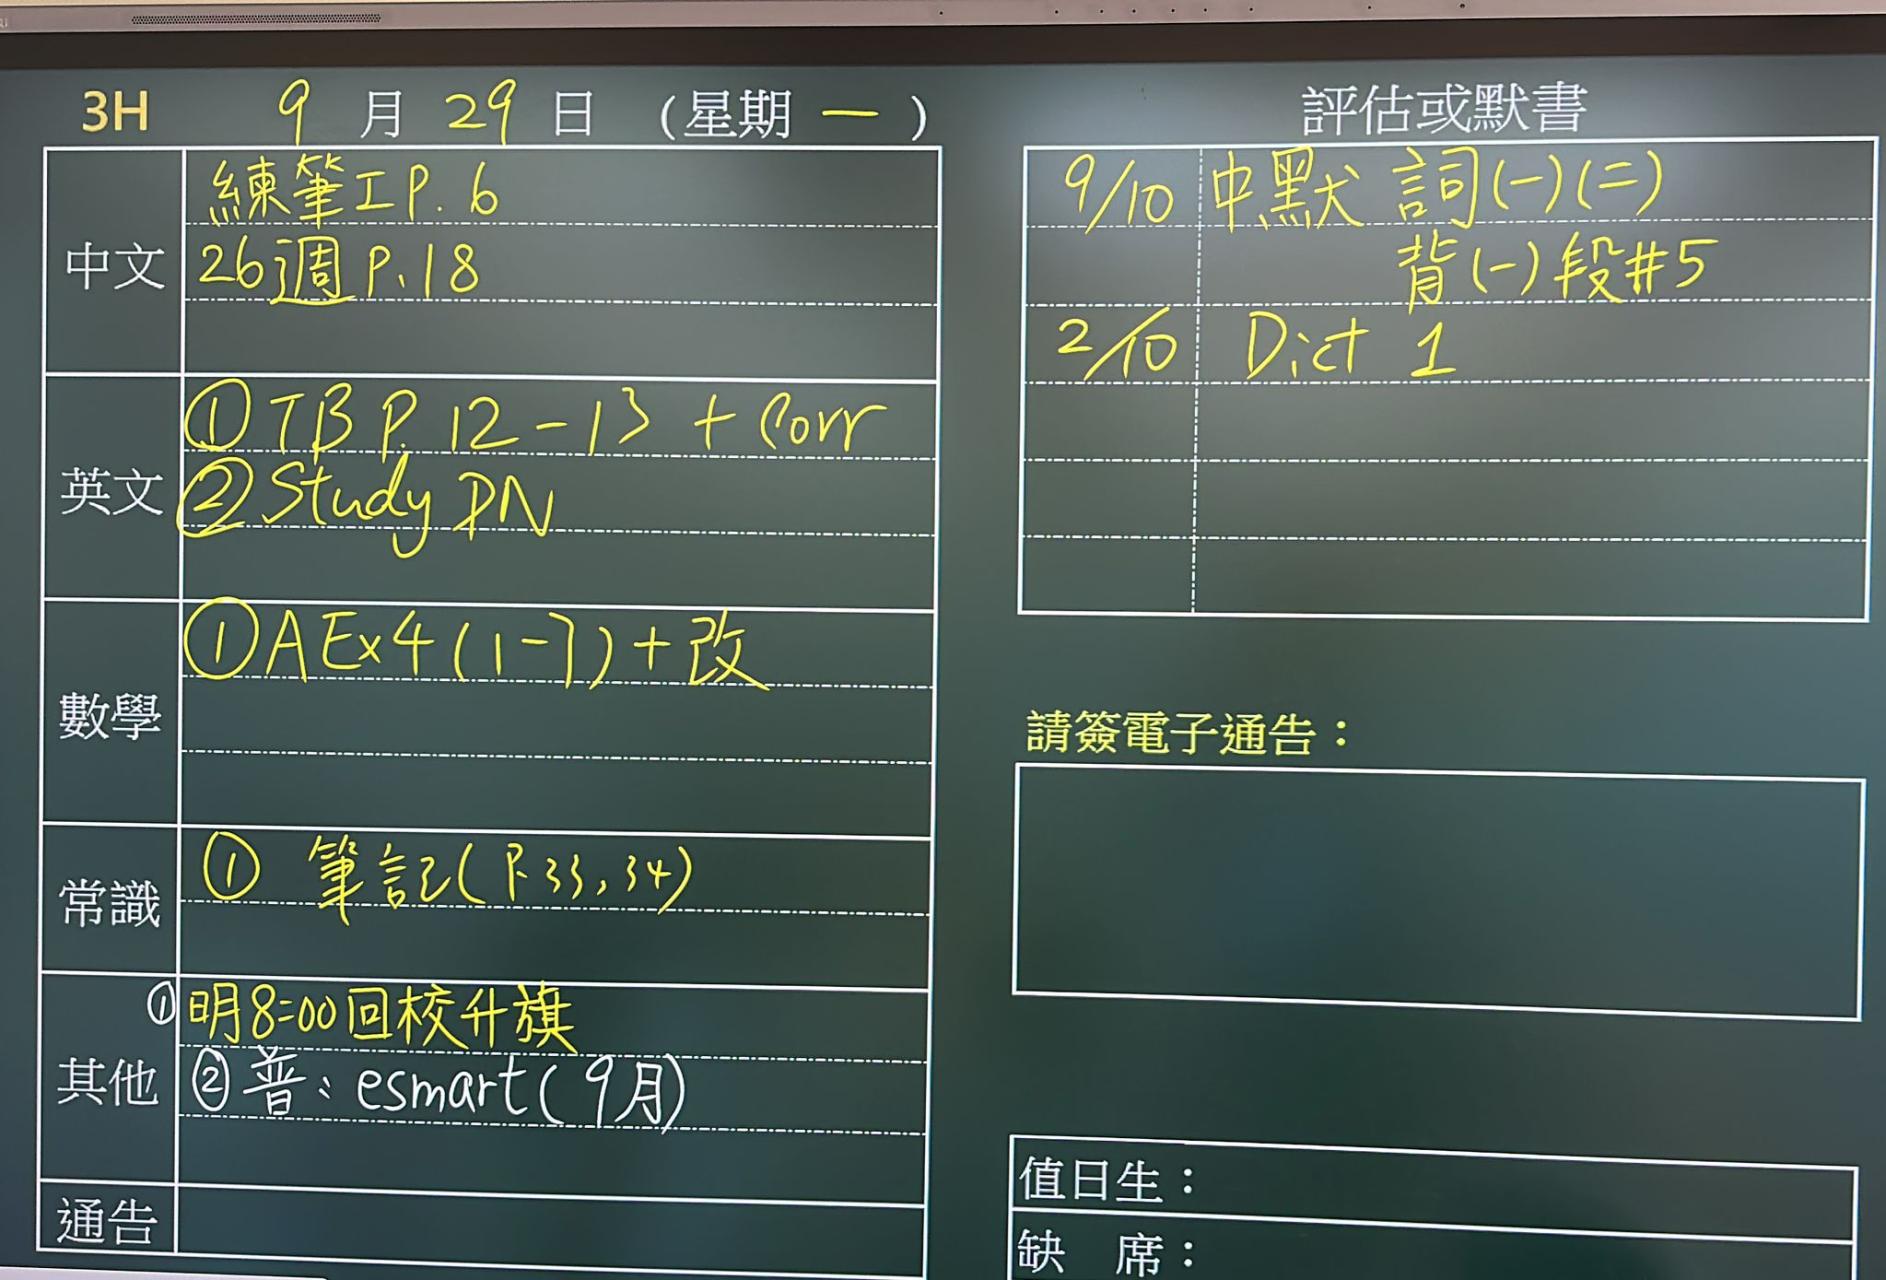 3H 9 月 29 日 (星期 一 )
中文
練筆工 P. 6
26週 P. 18
英文
① TB P. 12 - 13 + Corr
② Study DN
數學
① A Ex 4 (1-7) + 改
常識
① 筆記 (P. 33, 34)
其他
① 明8:00回校升旗
② 普: esmart (9月)
通告
評估或默書
9/10 中默 詞(一)(二)
背(一)段#5
2/10 Dict 1
請簽電子通告：
值日生：
缺 席：